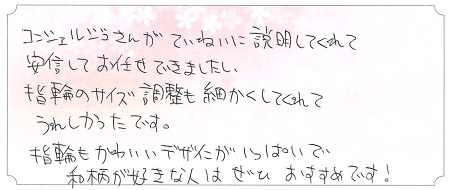 コンシェルジュさんがていねいに説明してくれて
安信してお任せできましたい
指輪のサイズ調整も細かくしてくれて
うれしかったです。
指輪もかわいいデザインがいっぱいで
和柄が好きな人はぜひおすすめです!